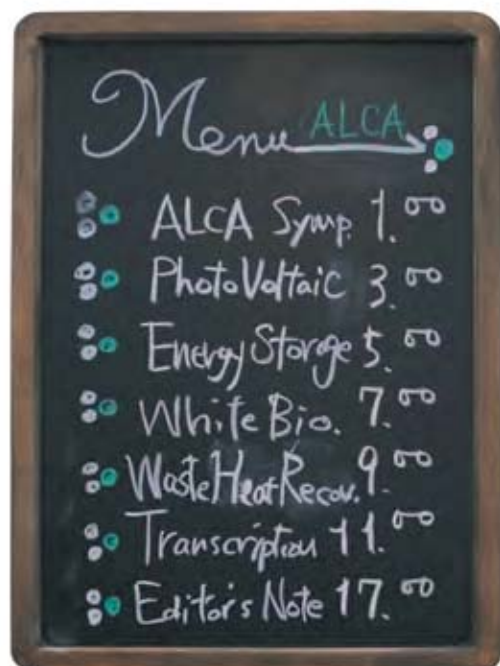 Menu ALCA
ALCA Symp. 1.00
PhotoVoltaic 3.00
Energy Storage 5.00
White Bio. 7.00
Waste Heat Recov. 9.00
Transcription 11.00
Editor's Note 17.00